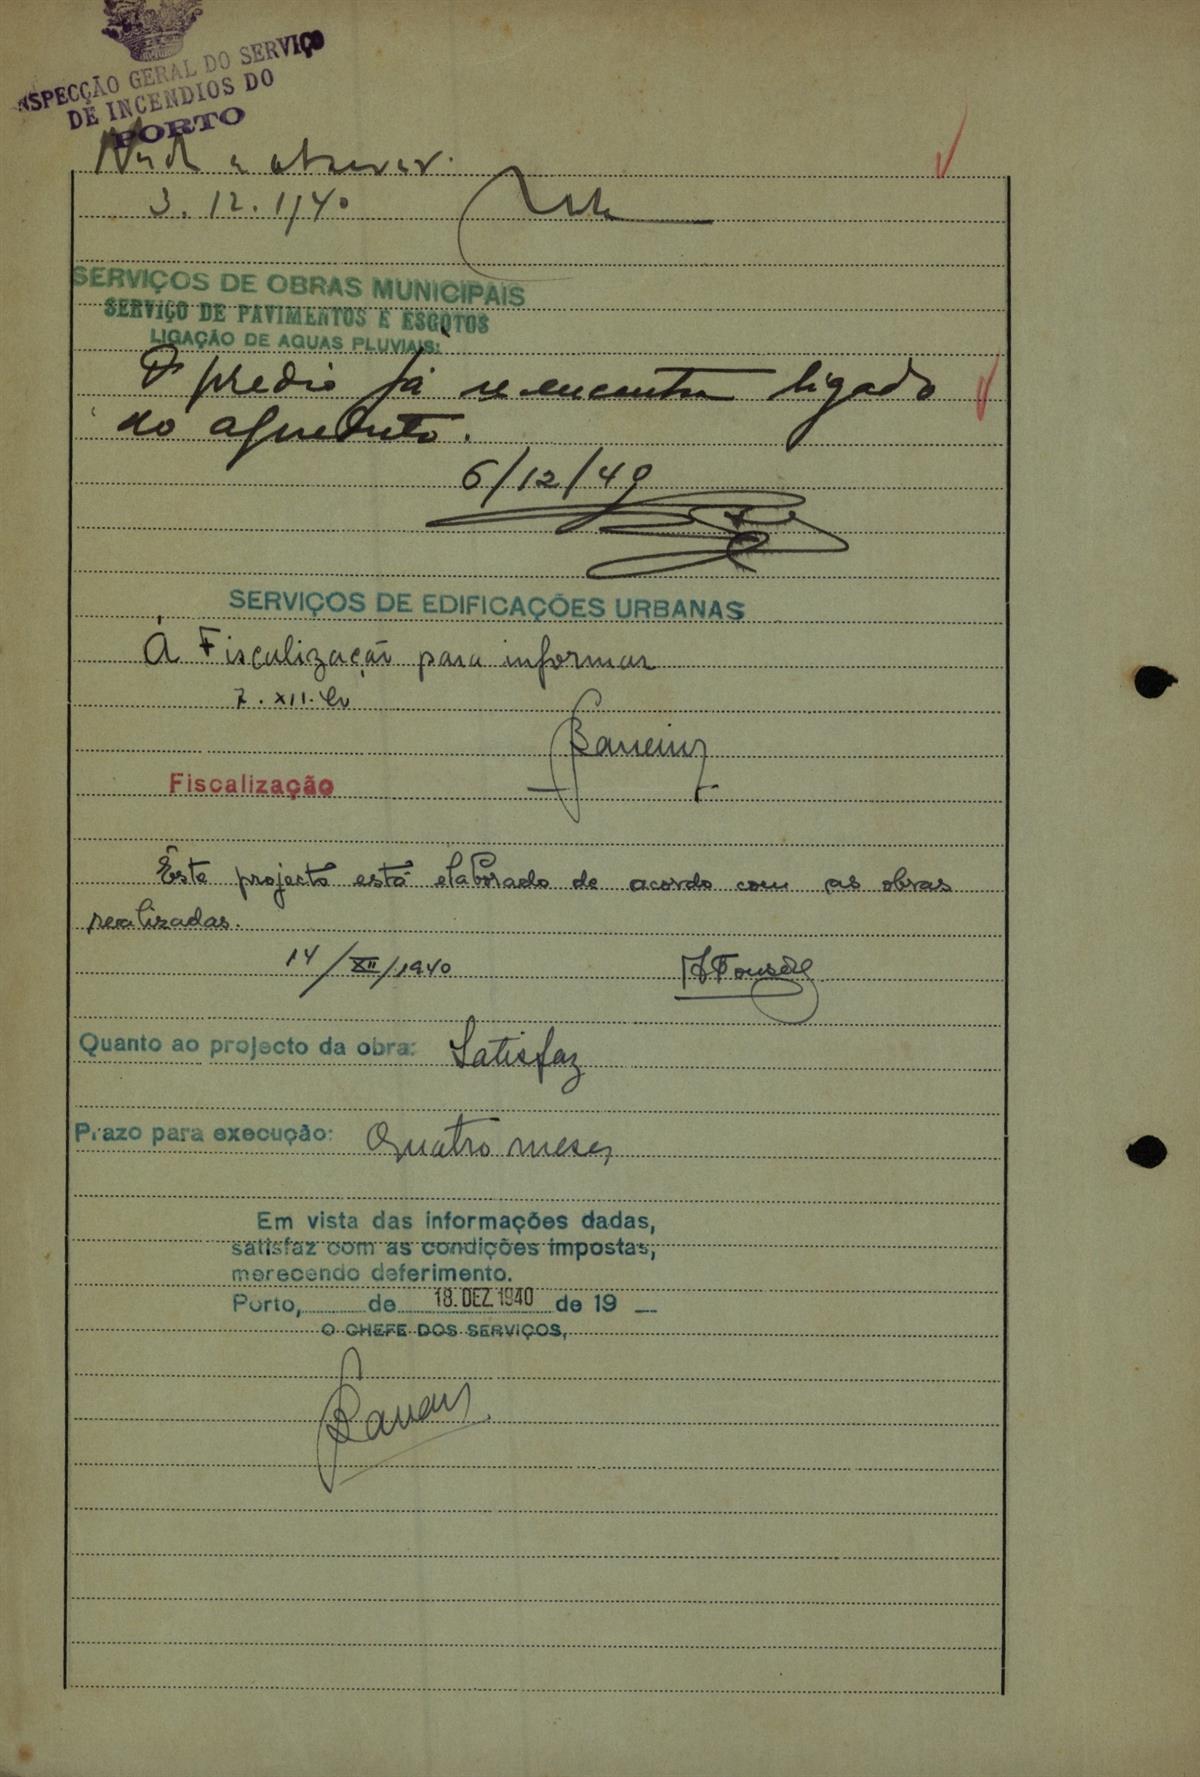 INSPECÇÃO GERAL DO SERVIÇO
DE INCENDIOS DO
PORTO
Nada a observar.
3.12.1940
SERVIÇOS DE OBRAS MUNICIPAIS
SERVIÇO DE PAVIMENTOS E ESGOTOS
LIGAÇÃO DE AGUAS PLUVIAIS:
O predio já se encontra ligado
ao aqueduto.
6/12/40
SERVIÇOS DE EDIFICAÇÕES URBANAS
Á Fiscalização para informar
7.XII.40
Fiscalização
Êste projecto está elaborado de acordo com as obras
realizadas.
14/XII/1940
Quanto ao projecto da obra: Satisfaz
Prazo para execução: Quatro meses
Em vista das informações dadas,
satisfaz com as condições impostas,
merecendo deferimento.
Porto, de 18.DEZ.1940 de 19
O CHEFE DOS SERVIÇOS,